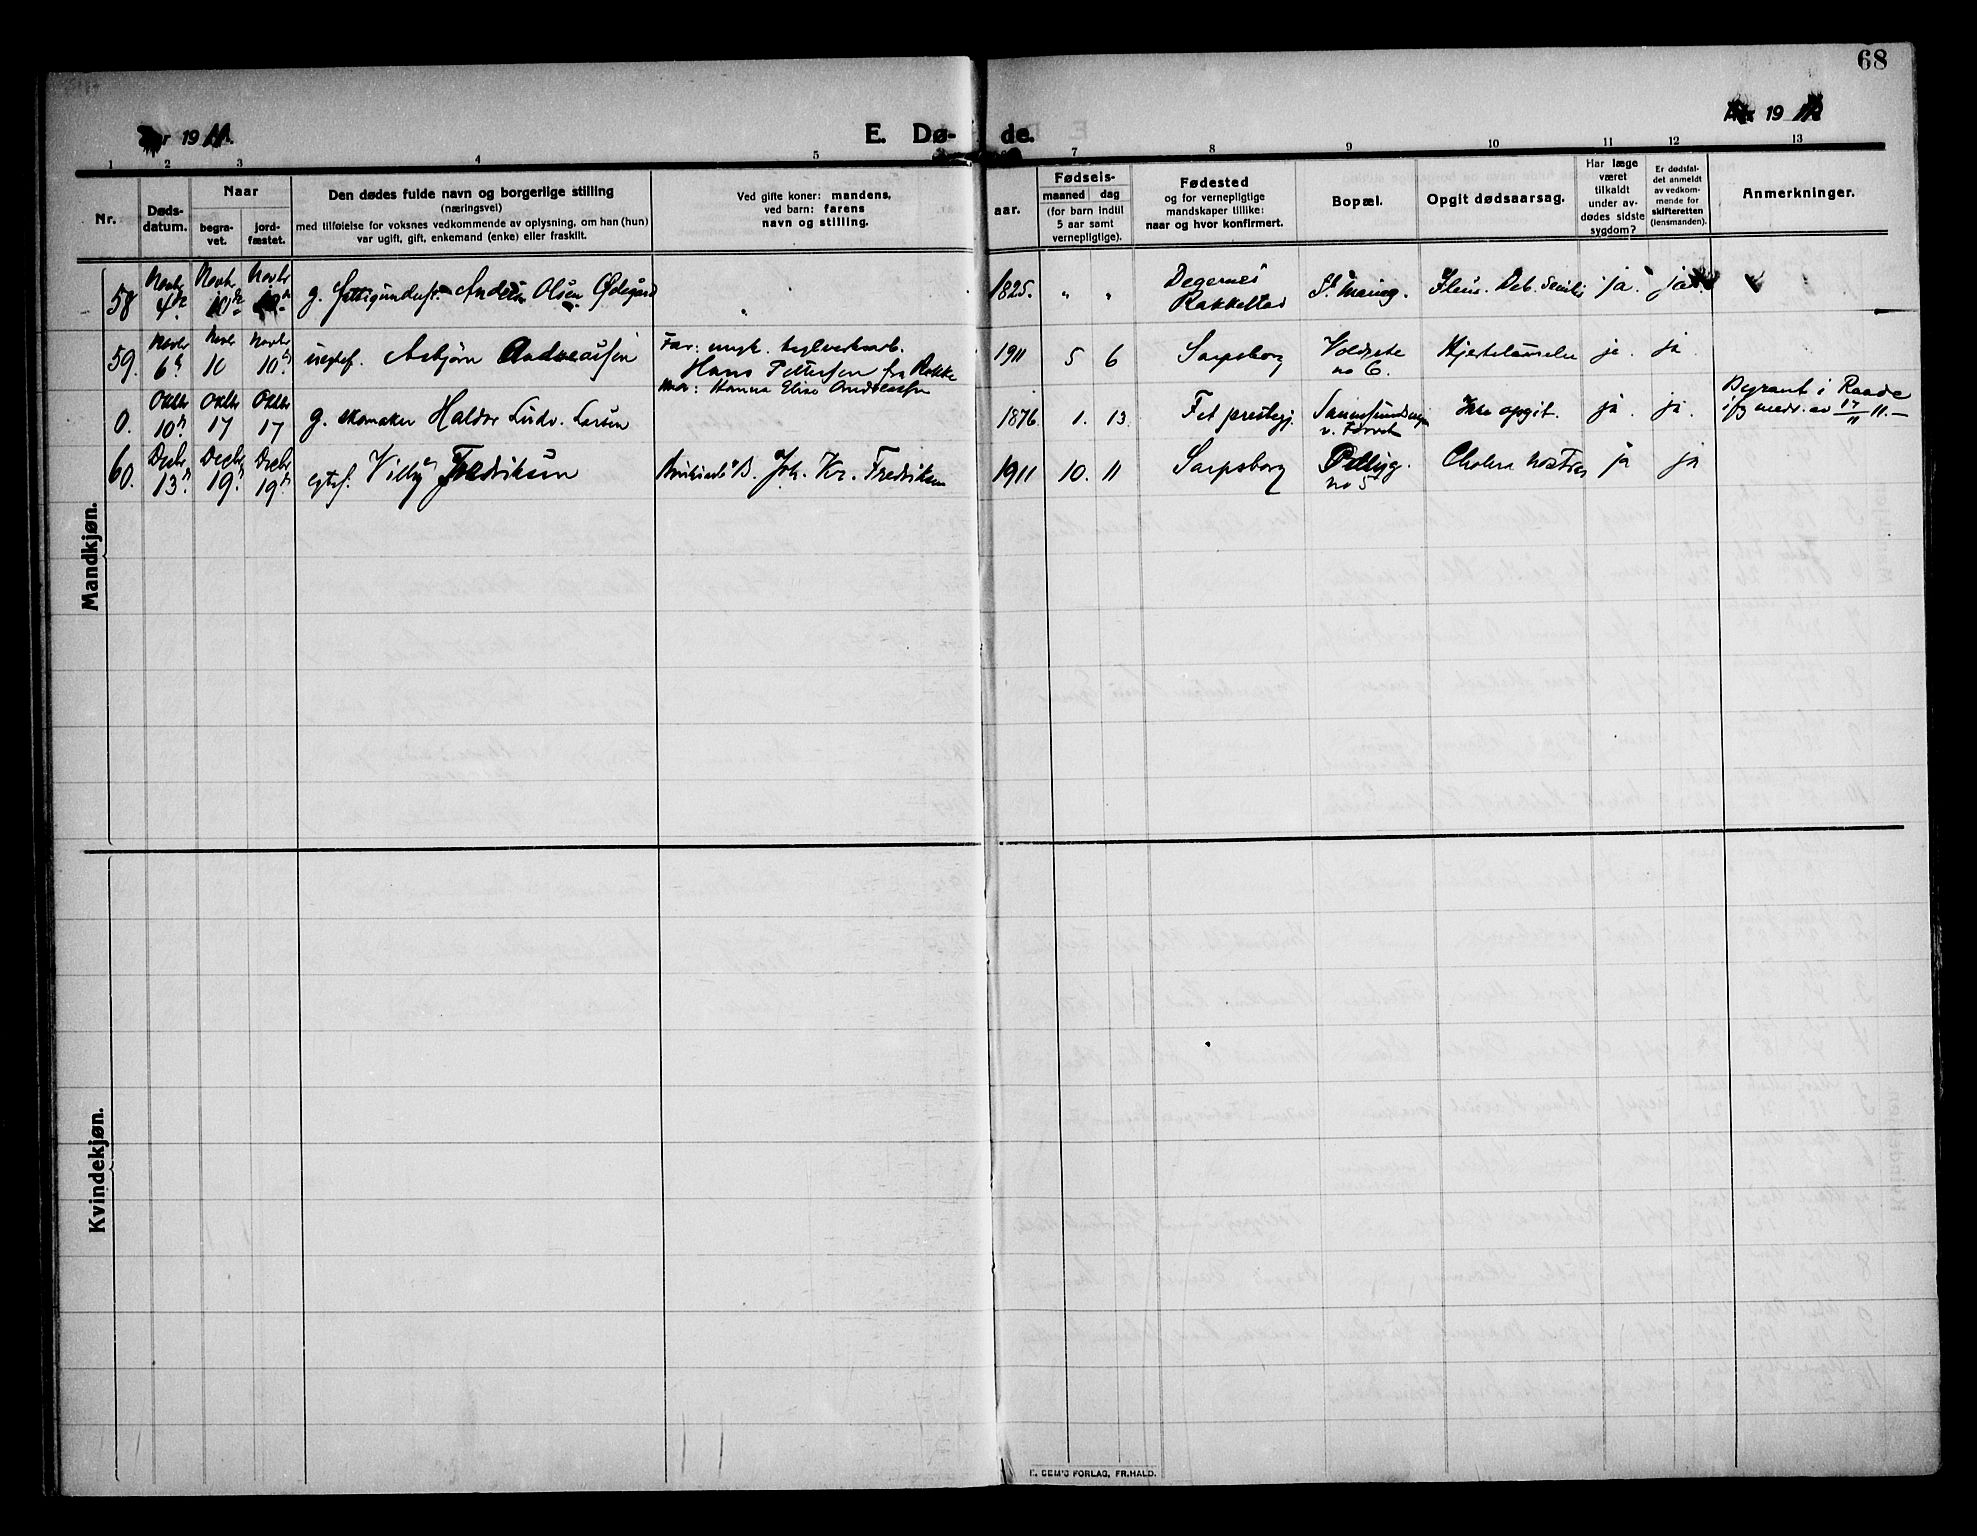 68
19 11.
E. Dø-
de.
19
1 2 3 4 5 7 8 9 10 11 12 13
Nr.
Døds-
datum.
Naar
begra-
vet.
jord-
fæstet.
Den dødes fulde navn og borgerlige stilling
(næringsvei)
med tilføielse for voksnes vedkommende av oplysning, om han (hun)
var ugift, gift, enkemand (enke) eller fraskilt.
Ved gifte koner: mandens,
ved barn: farens
navn og stilling.
aar.
Fødsels-
maaned dag
(for barn indtil
5 aar samt
vernepligtige).
Fødested
og for vernepligtige
mandskaper tillike:
naar og hvor konfirmert.
Bopæl.
Opgit dødsaarsag.
Har læge
været
tilkaldt
under av-
dødes sidste
sygdom?
Er dødsfal-
det anmeldt
av vedkom-
mende for
skifteretten
(lensmanden).
Anmerkninger.
Mandkjøn.
58 Novbr 4de Novbr 10de Novbr g. Anders Olsen Ødegård 1825. " " Degernes Rakkestad St. Marieg. Deb. senilis ja. ja.
59. Novbr 6te Novbr 10 Novbr 10de uegtef. Asbjørn Andreassen
Far: ungk. teglverksarb.
Hans Pettersen fra Rokke
Mor: Hanna Elise Andreassen
1911 5 6 Sarpsborg no 6. Hjertelammelse ja. ja.
0. Oktbr 10de Oktbr 17 Oktbr 17 g. skomaker Haldor Ludv. Larsen 1876 1. 13. Fet prestegj. v. Torvet Ikke opgit. ja. ja. Begravet i Raade
ifg. medd. av 17/11 11.
60. Decbr 13de Decbr 19de Decbr 19de egtef. Villy Fredriksen Joh. Kr. Fredriksen 1911 10. 11 Sarpsborg no 5 Cholera nostras ja ja
Kvindekjøn.
E. SEM'S FORLAG, FR.HALD.